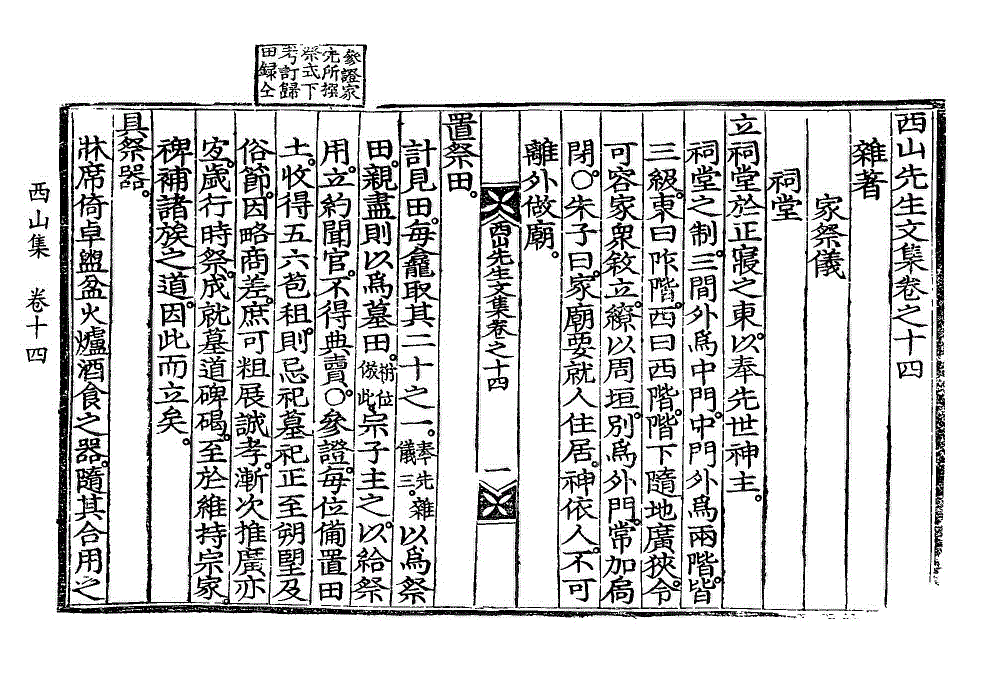 西山先生文集卷之十四
雜著
家祭儀
祠堂
立祠堂於正寢之東。以奉先世神主。
祠堂之制。三間外爲中門。中門外爲兩階。皆
三級。東曰阼階。西曰西階。階下隨地廣狹。令
可容家衆敘立。繚以周垣。別爲外門。常加扃
閉。○朱子曰。家廟要就人住居。神依人。不可
離外做廟。
西山先生文集卷之十四
一
置祭田。
計見田。每龕取其二十之一。奉先雜儀三。以爲祭
田。親盡則以爲墓田。祔位倣此。宗子主之。以給祭
用。立約聞官。不得典賣。○參證。每位備置田
土。收得五六苞租。則忌祀墓祀正至朔朢及
俗節。因略商差。庶可粗展誠孝。漸次推廣。亦
宜歲行時祭。成就墓道碑碣。至於維持宗家。
裨補諸族之道。因此而立矣。
具祭器。
牀席倚卓盥盆火爐酒食之器。隨其合用之
參證家
先所撰
祭式下
考訂歸
田錄仝
西山集 卷十四